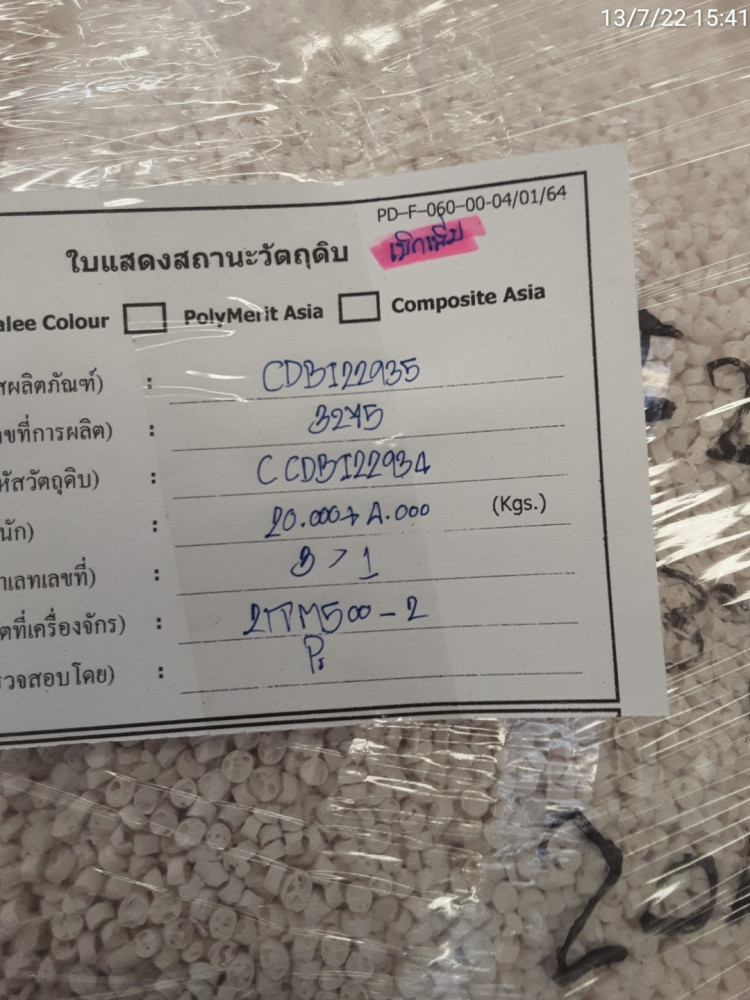 13/7/22 15:41
PD-F-060-00-04/01/64
ใบแสดงสถานะวัตถุดิบ เบิกเพิ่ม
alee Colour PolyMerit Asia Composite Asia
สผลิตภัณฑ์) : CDBI22935
ขที่การผลิต) : 3275
หัสวัตถุดิบ) : CCDBI22934
นัก) : 20.000+ A.000 (Kgs.)
าเลทเลขที่) : 3 > 1
ตที่เครื่องจักร) : 500-2
รวจสอบโดย) :